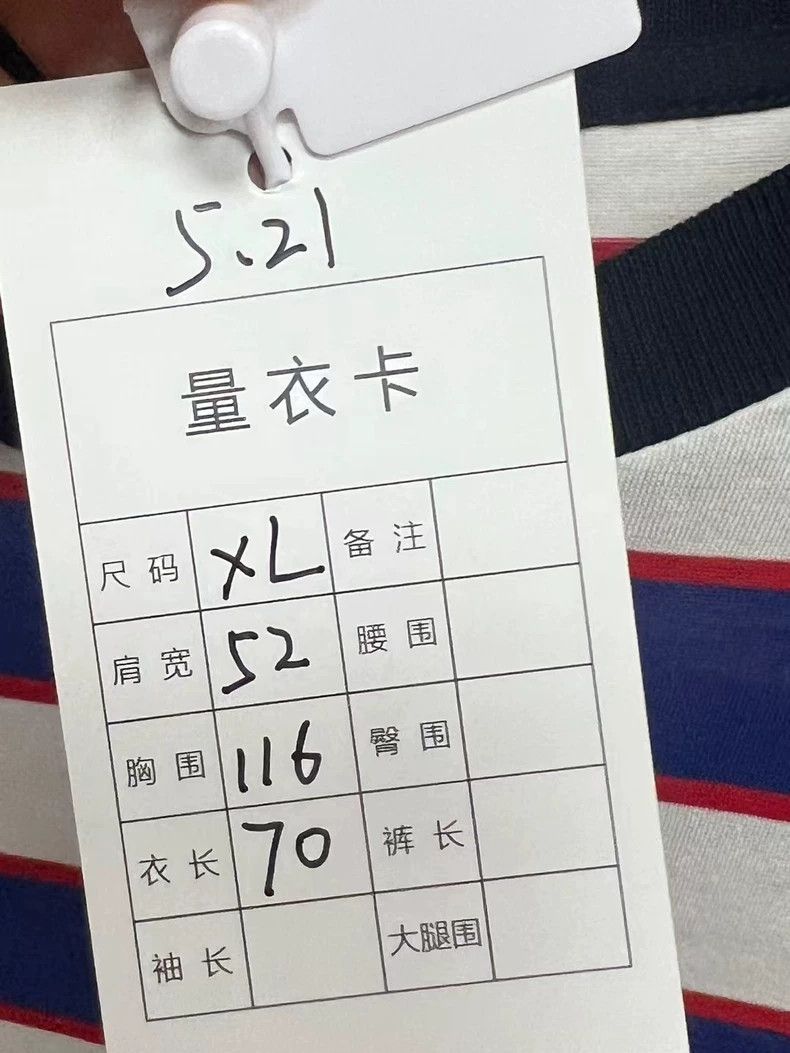 5.21
量衣卡
尺码 XL 备注
肩宽 52 腰围
胸围 116 臀围
衣长 70 裤长
袖长 大腿围